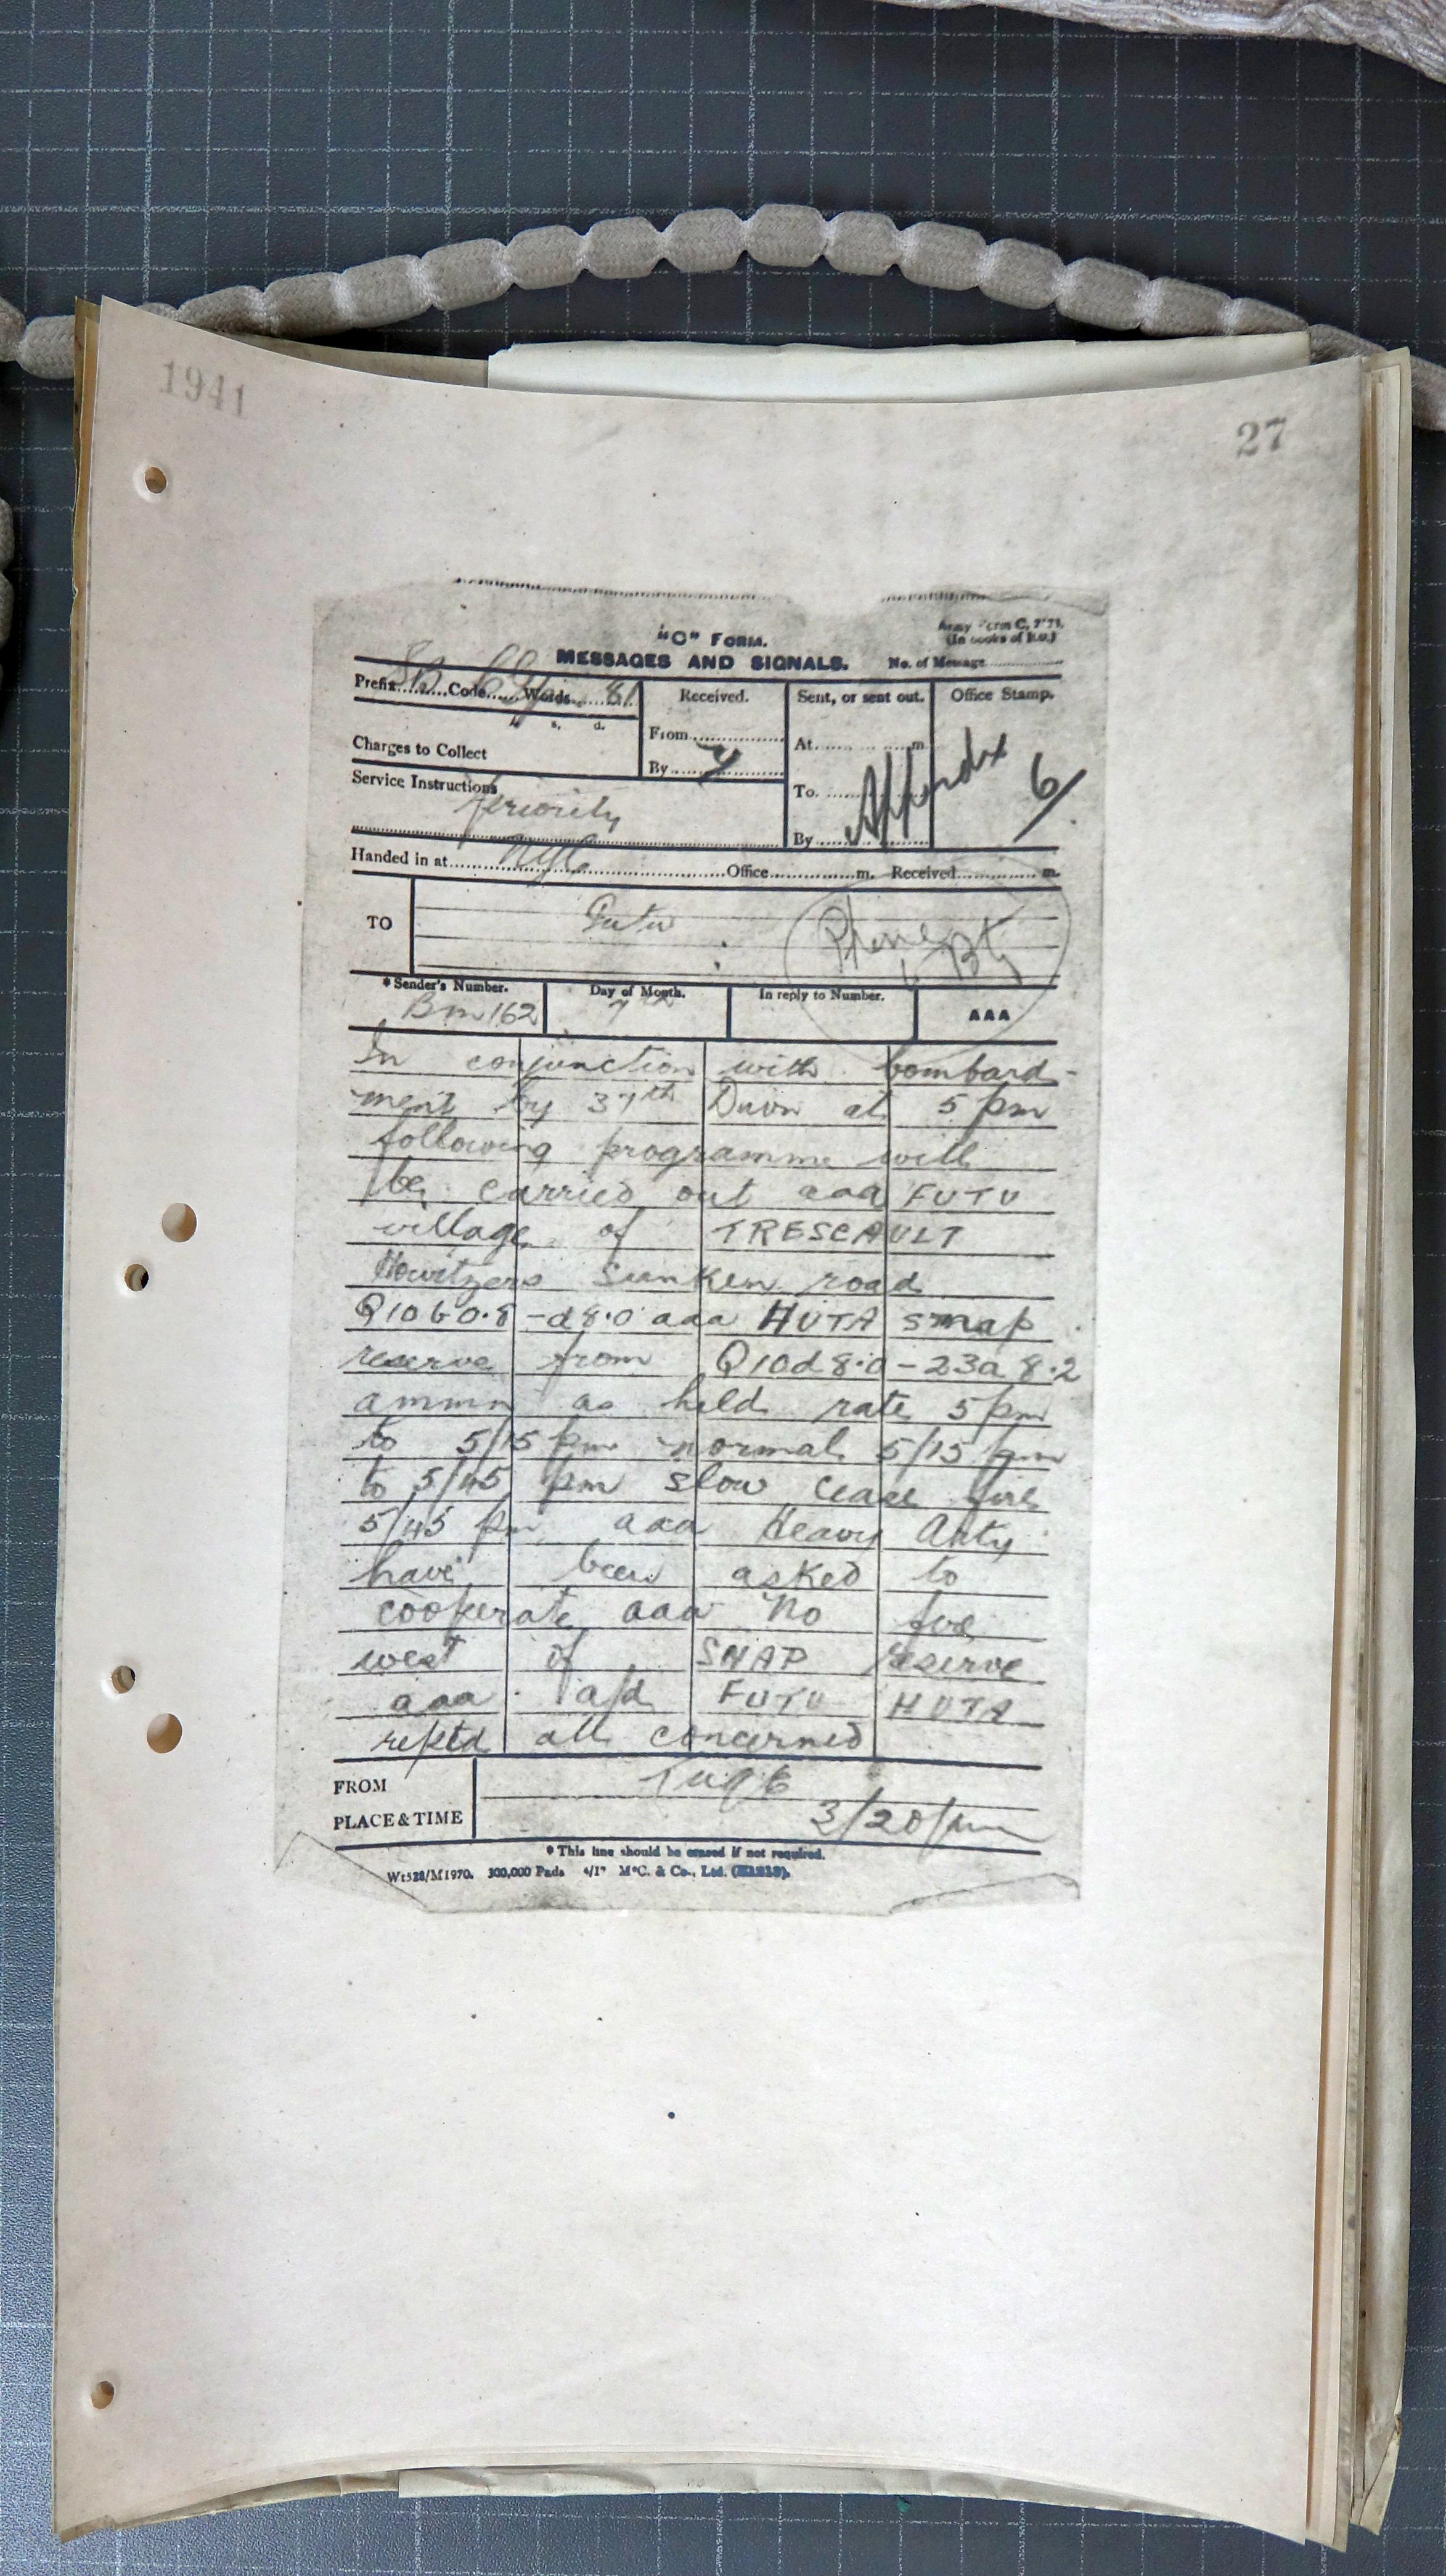 1941
27
"C" Form.
Army Form C. 2121.
(In books of 100.)
MESSAGES AND SIGNALS.
No. of Message
Prefix Code Words 81
Received.
Sent, or sent out.
Office Stamp.
s. d.
Charges to Collect
From
By
At m
To
By
Appendix 6/
Service Instructions
Priority
Handed in at Office m. Received m.
TO
Futu
Phone Bty
* Sender's Number.
Day of Month.
In reply to Number.
AAA
Bm 162
7th
In conjunction with bombard-
ment by 37th Divn at 5 pm
following programme will
be carried out aaa FUTU
village of TRESCAULT
Howitzers sunken road
Q10b0.8 - d8.0 aaa HUTA snap
reserve from Q10d8.0 - 23a 8.2
ammn as held rate 5 pm
to 5/15 pm normal 5/15 pm
to 5/45 pm slow cease fire
5/45 pm aaa Heavy Arty
have been asked to
cooperate aaa No fire
west of SNAP reserve
aaa a/d FUTU HUTA
reptd all concerned
FROM
PLACE & TIME
3/20/pm
* This line should be erased if not required.
Wt528/M1970. 300,000 Pads 4/17 McC. & Co., Ltd.